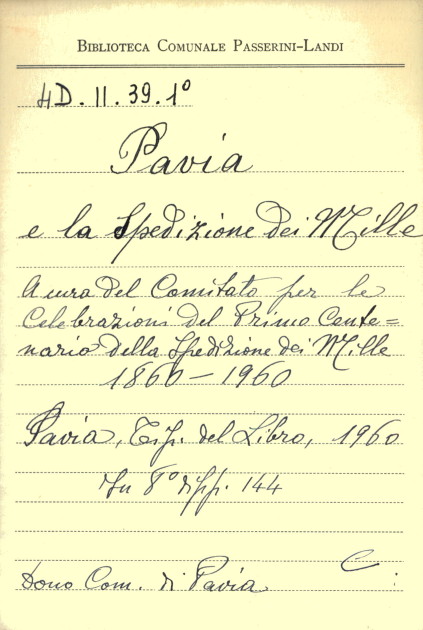 BIBLIOTECA COMUNALE PASSERINI-LANDI
4D. II. 39. 1°
Pavia
e la Spedizione dei Mille
A cura del Comitato per le
Celebrazioni del Primo Cente=
nario della Spedizione dei Mille
1860 - 1960
Pavia, Tip. del Libro, 1960
In 8° di pp. 144
C
Dono Com. di Pavia